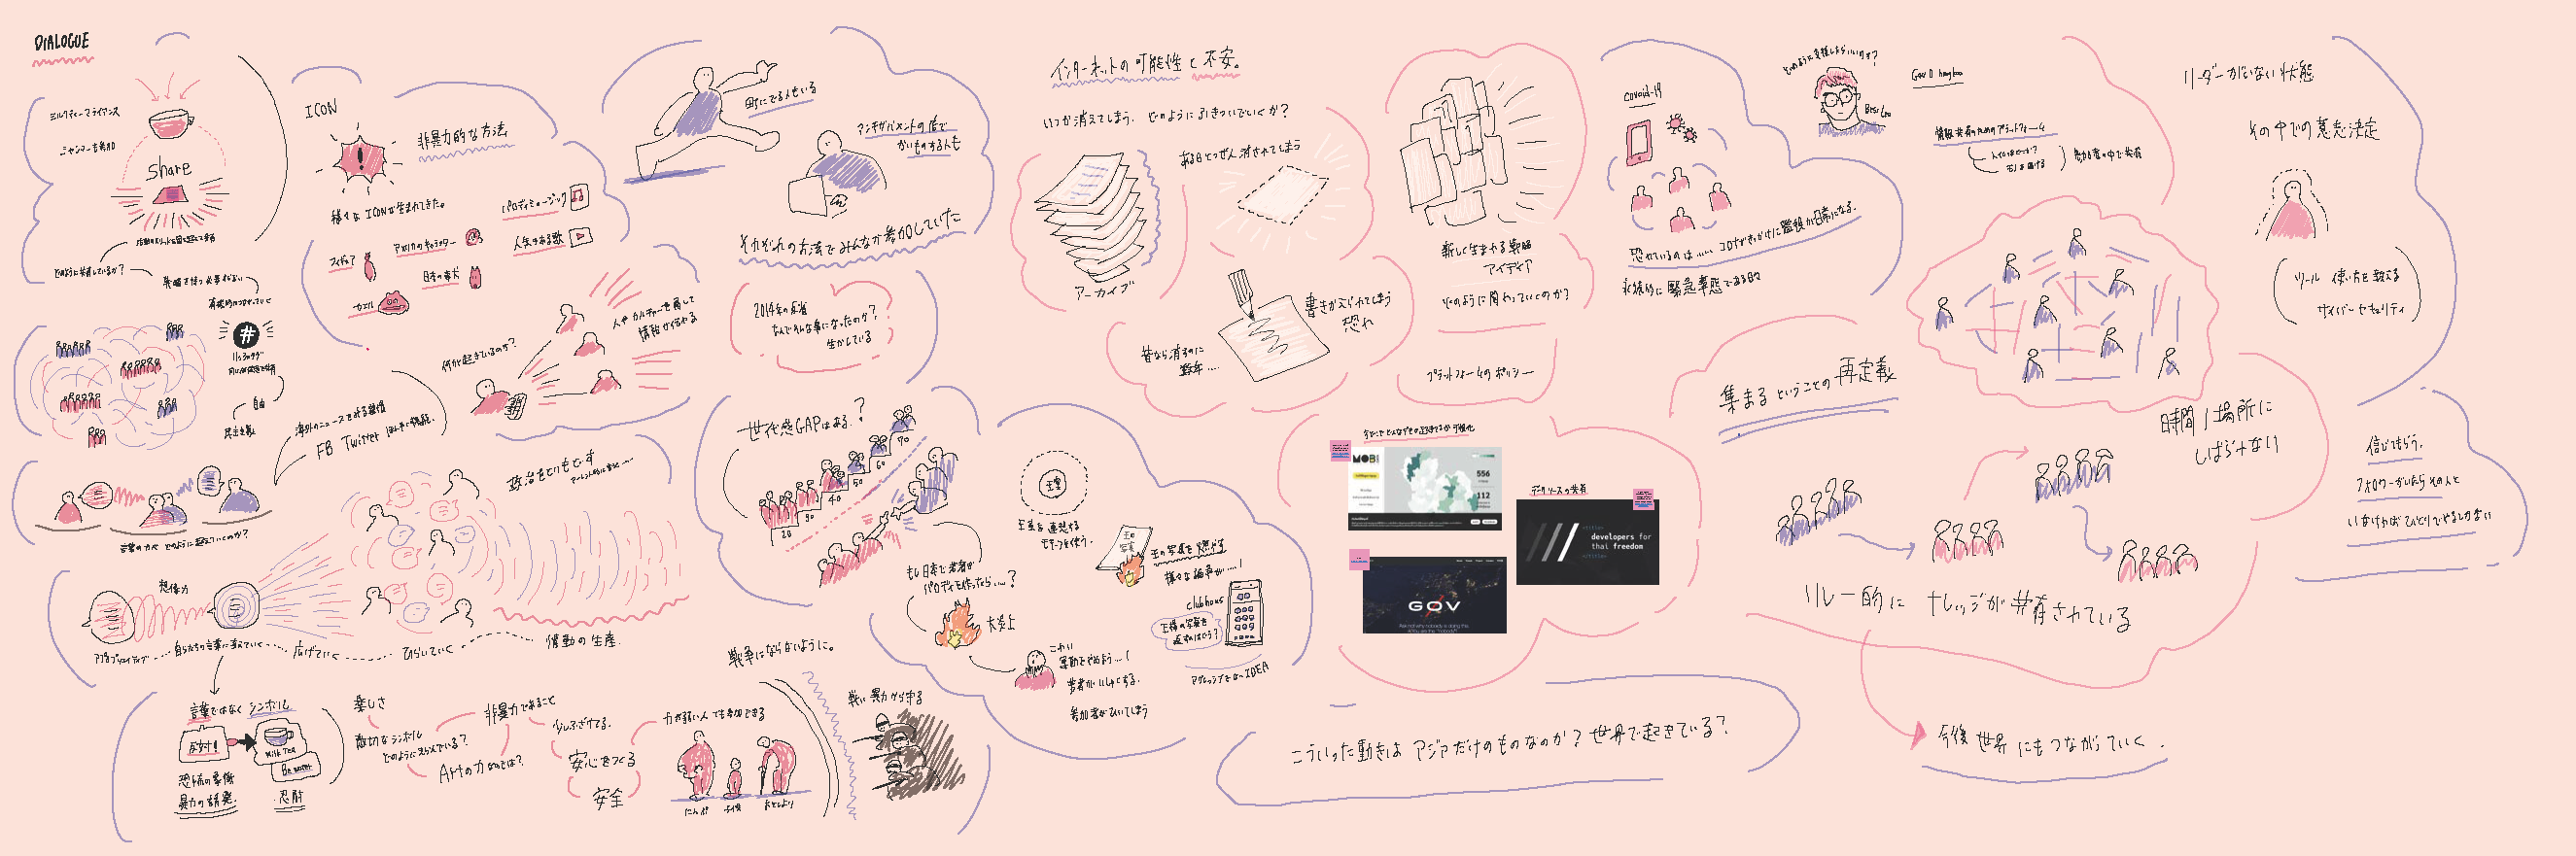 DIALOGUE
ミルクティーアライアンス
ミャンマーも参加
share
どのように共有しているか?
#
ハッシュタグ
自由
民主主義
ICON
!
非暴力的な方法
様々なICONが生まれてきた。
パロディミュージック
アメリカのキャラクター
人気のある歌
フィギュア
日本の柴犬
カエル
何が起きているのか?
人やカルチャーを通して
情報が伝わる
海外のニュースをみる習慣
FB Twitter
政治をとりもどす
言葉の力で どのように超えていくのか?
想像力
自分たちの言葉に変えていく
広げていく
ひらいていく
衝動の生産
言葉ではなく シンボル
反対!
Milk Tea
Be water
恐怖の象徴
暴力の誘発
忍耐
楽しさ
適切なシンボル
どのように考えている?
非暴力であること
少しふざけてる。
Artの力なのでは?
安心をつくる
安全
力が弱い人でも参加できる
にんぷ
子供
おとしより
戦争にならないように。
戦い暴力から守る
町にでる人もいる
かいものする人も
それぞれの方法でみんなが参加していた
2014年の反省
なんでそんな事になったのか?
生かしている
世代感GAPはある?
20
30
40
50
60
70
もし日本で若者が
パロディを作ったら…?
大炎上
こわい
運動をやめよう…!
若者がいしゅくする。
参加者がひいてしまう
王室を連想する
モチーフを使う。
王の
写真
王の写真を燃やす
様々な論争が…!
clubhous
王様の写真を
アグレッシブなIDEA
インターネットの可能性と不安。
いつか消えてしまう。どのように引きついでいくか?
アーカイブ
ある日とつぜん消されてしまう
書きかえられてしまう
恐れ
昔なら消すのに
数年…
新しく生まれる戦略
アイディア
どのように関わっていくのか?
プラットフォームのポリシー
MOBI
556
112
データソースの共有
developers for
thai freedom
GOV
こういった動きは アジアだけのものなのか? 世界で起きている?
covid-19
恐れているのは…… コロナがきっかけに監視が日常になる。
永続的に緊急事態である日々
どのように支援したらいいのか?
情報共有のためのプラットフォーム
参加者の中で共有
リーダーがいない状態
その中での意志決定
ツール 使い方を教える
サイバーセキュリティ
集まるということの再定義
時間/場所に
しばられない
リレー的に ナレッジが共有されている
今後世界にもつながっていく.
信じてもらう。
フォロワーがいたらその人と
いなければひとりでやるしかない